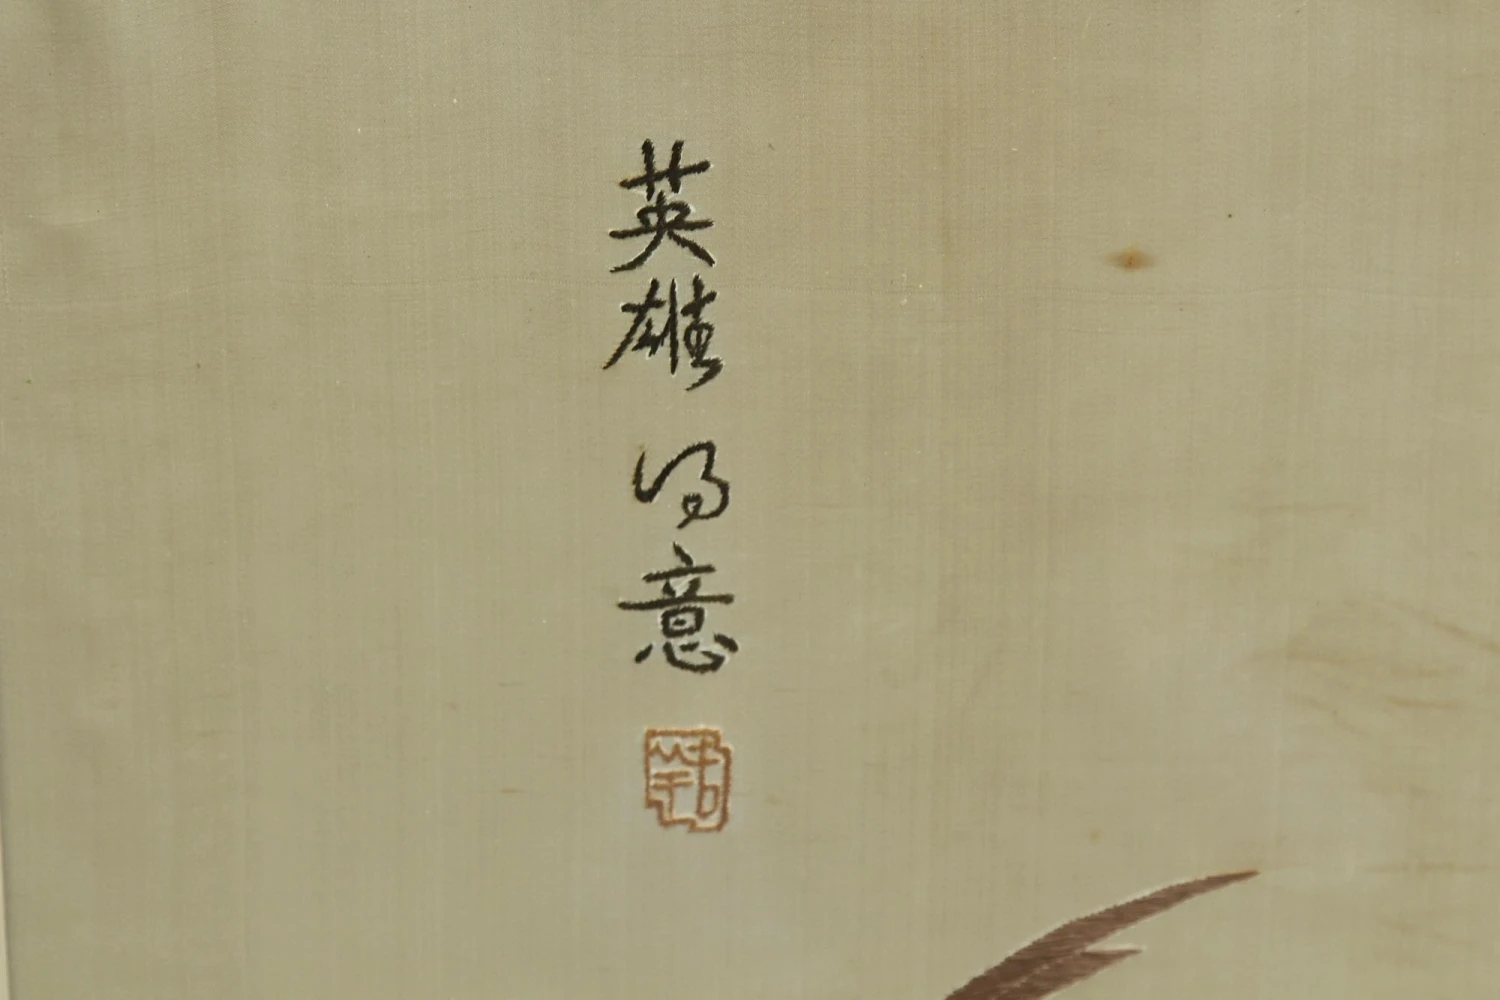 英雄得意